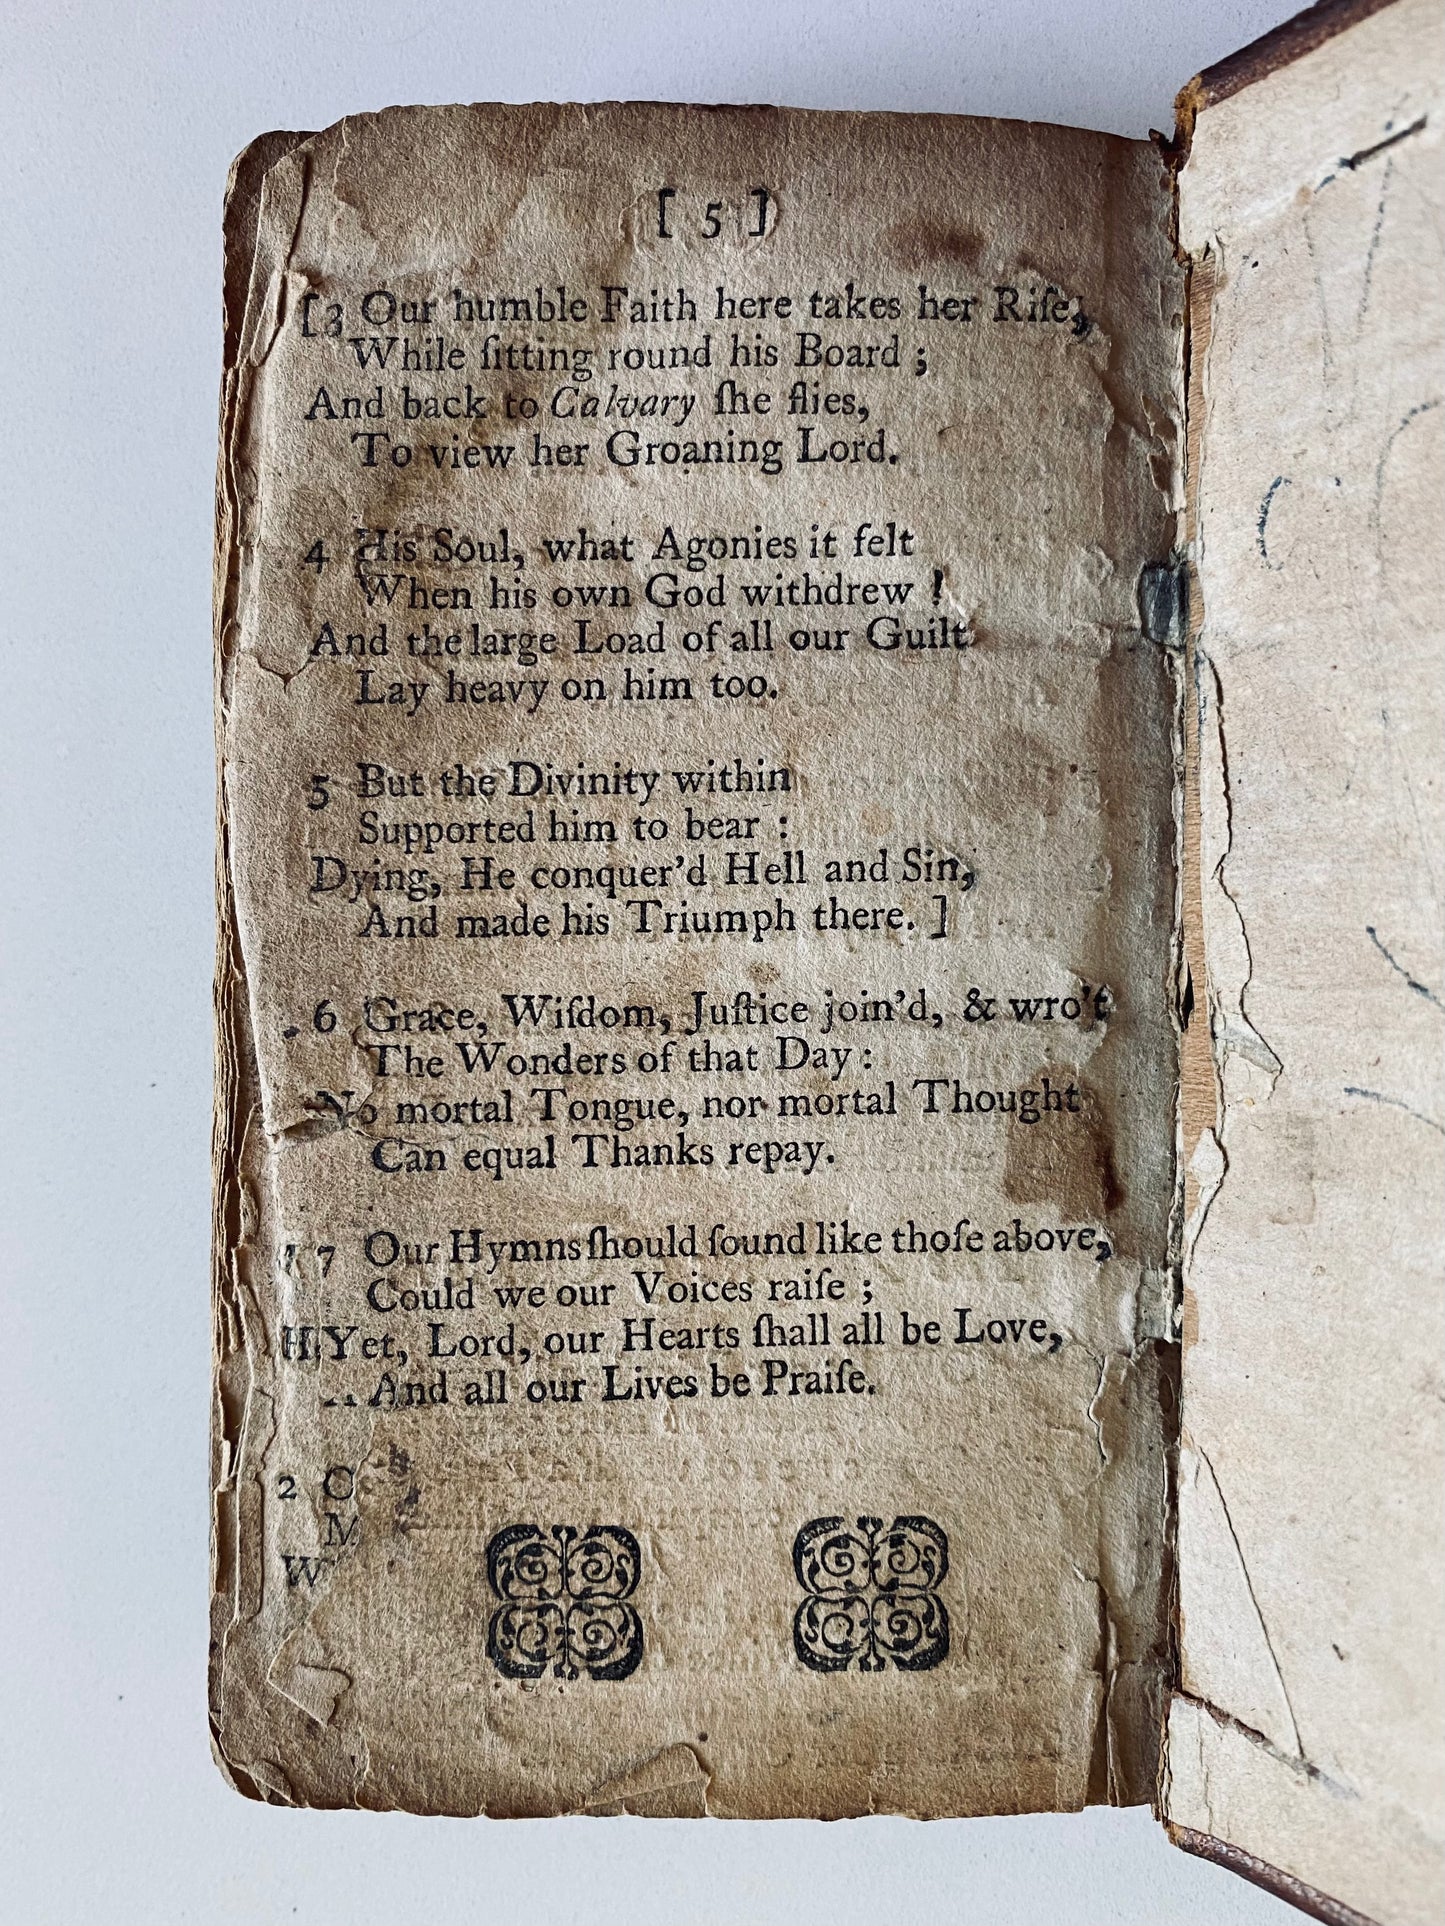 [ 5 ]
[3 Our humble Faith here takes her Riſe,
While ſitting round his Board ;
And back to Calvary ſhe flies,
To view her Groaning Lord.
4 His Soul, what Agonies it felt
When his own God withdrew !
And the large Load of all our Guilt
Lay heavy on him too.
5 But the Divinity within
Supported him to bear :
Dying, He conquer'd Hell and Sin,
And made his Triumph there. ]
6 Grace, Wiſdom, Juſtice join'd, & wro't
The Wonders of that Day :
No mortal Tongue, nor mortal Thought
Can equal Thanks repay.
7 Our Hymns ſhould ſound like thoſe above,
Could we our Voices raiſe ;
Yet, Lord, our Hearts ſhall all be Love,
And all our Lives be Praiſe.
2